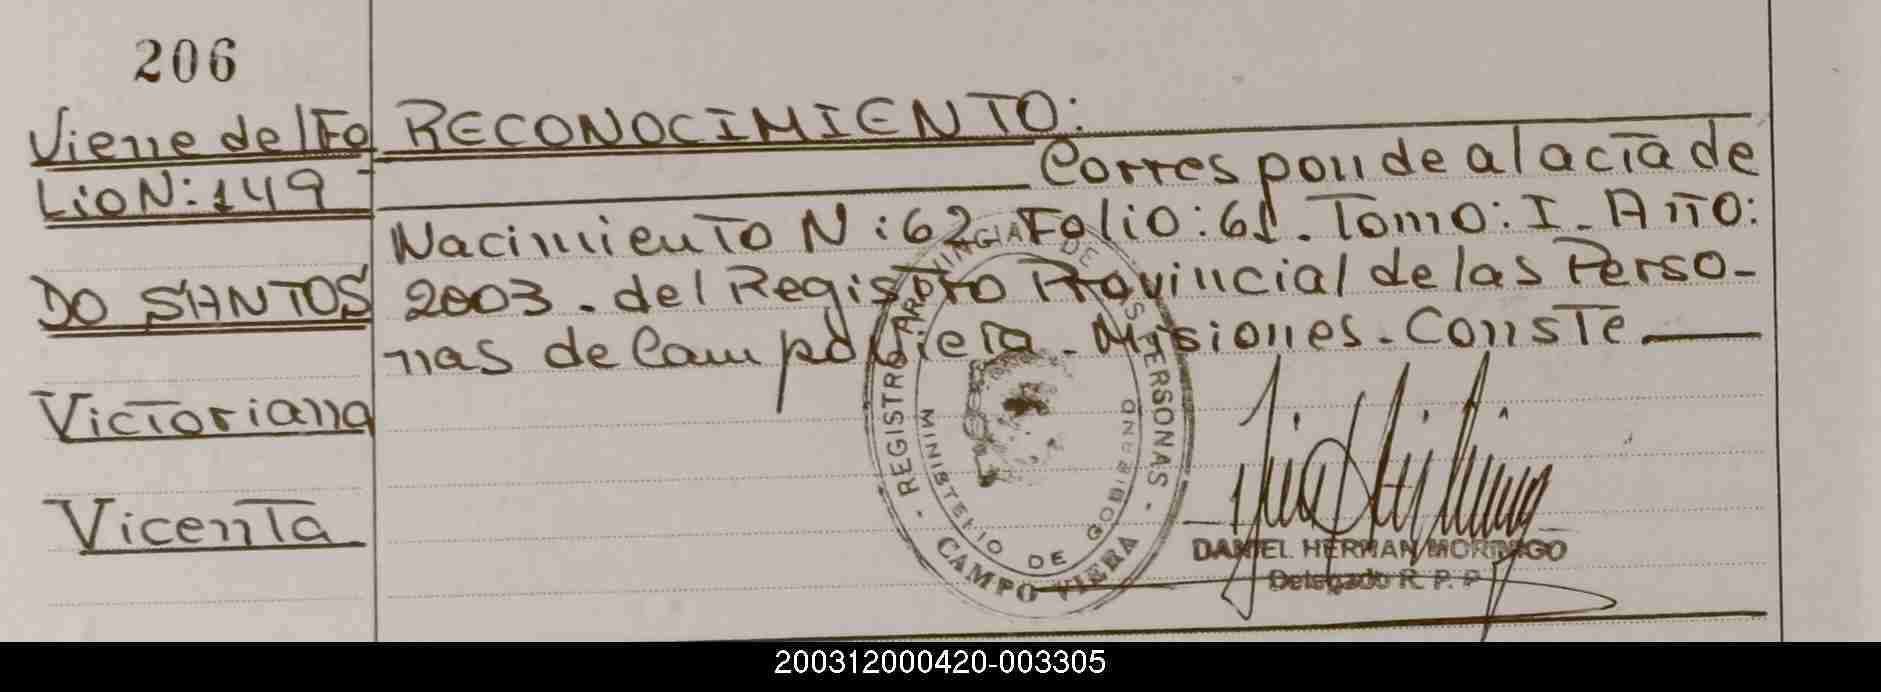 206
Viene del Fo
Lio N: 149-
DO SANTOS
Victoriana
Vicenta
RECONOCIMIENTO:
Corresponde al acta de
Nacimiento N: 62 Folio: 61. Tomo: I. Año:
2003. del Registro Provincial de las Perso-
nas de Campo Viera - Misiones. Conste
REGISTRO PROVINCIAL DE LAS PERSONAS
MINISTERIO DE GOBIERNO
- CAMPO VIERA -
DANIEL HERNAN MORINIGO
Delegado R. P. P
200312000420-003305